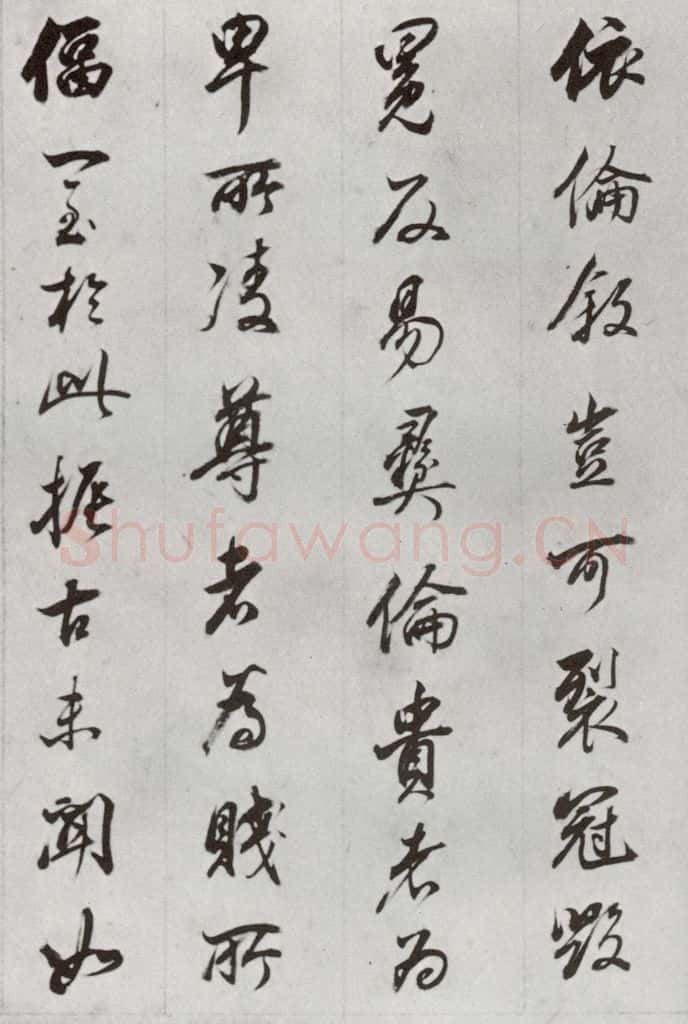 依倫敘豈可裂冠毀
冕反易彝倫貴者為
卑所凌尊者為賤所
偪一至於此振古未聞如
Shufawang.CN